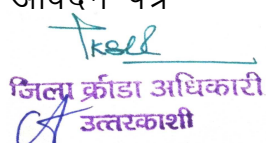 आवेदन पत्र
जिला क्रीडा अधिकारी
उत्तरकाशी